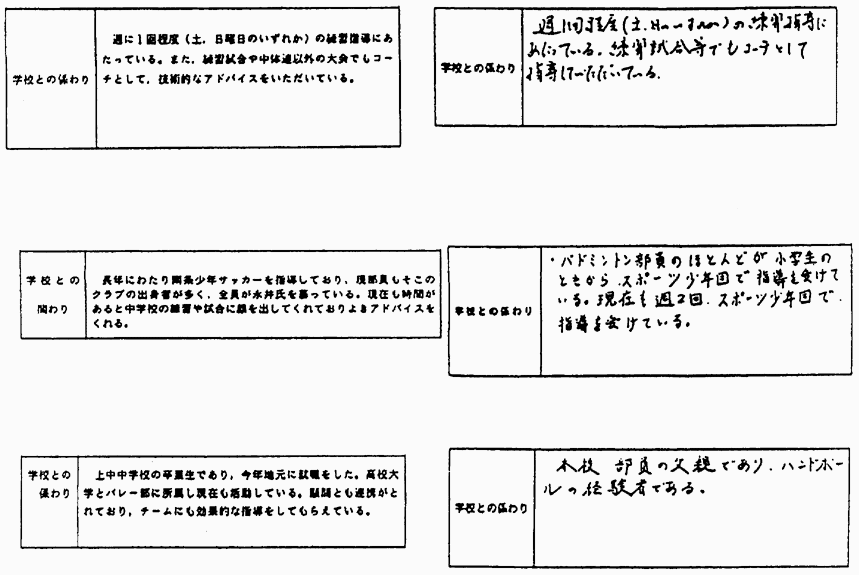 学校との係わり
週に1回程度(土，日曜日のいずれか)の練習指導にあ
たっている。また，練習試合や中体連以外の大会でもコー
チとして，技術的なアドバイスをいただいている。
学校との係わり
週1回程度(土.日のいずれか)の練習指導に
あたっている。練習試合等でもコーチとして
指導していただいている。
学校との
関わり
長年にわたり南条少年サッカーを指導しており，現部員もそこの
クラブの出身者が多く，全員が水井氏を慕っている。現在も時間が
あると中学校の練習や試合に顔を出してくれておりよきアドバイスを
くれる。
学校との係わり
・バドミントン部員のほとんどが小学生の
ときからスポーツ少年団で指導を受けて
いる。現在も週2回.スポーツ少年団で.
指導を受けている。
学校との
係わり
上中中学校の卒業生であり，今年地元に就職をした。高校大
学とバレー部に所属し現在も活動している。顧問とも連携がと
れており，チームにも効果的な指導をしてもらえている。
学校との係わり
本校 部員の父親であり.ハンドボー
ルの経験者である。